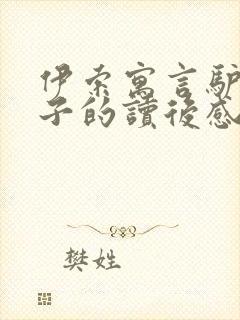 伊索寓言驴
子的讀後感
樊姓